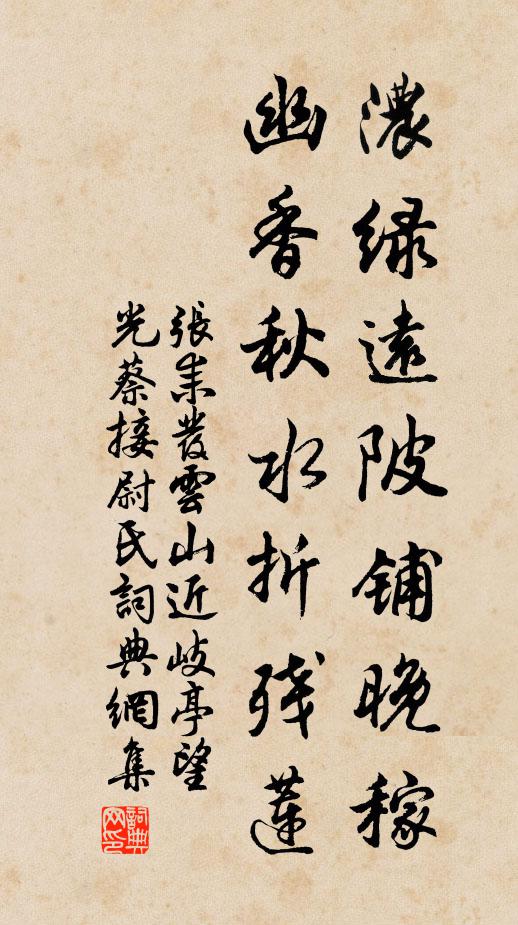 濃绿遠陂铺晚稼
幽香秋水折残蓮
張耒發雲山近岐亭望
光蔡接尉氏詞典網集
詞典网印